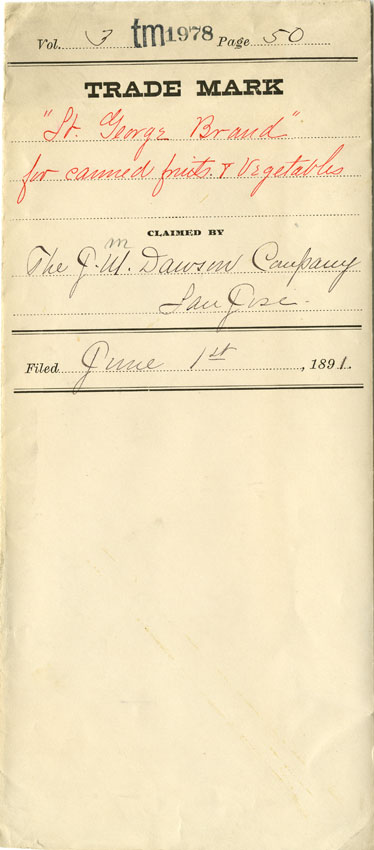 Vol. 3 tm1978 Page 50
TRADE MARK
"St. George Brand"
for canned fruits & Vegetables
CLAIMED BY
m
The J. M. Dawson Company
San Jose.
Filed June 1st, 1891.